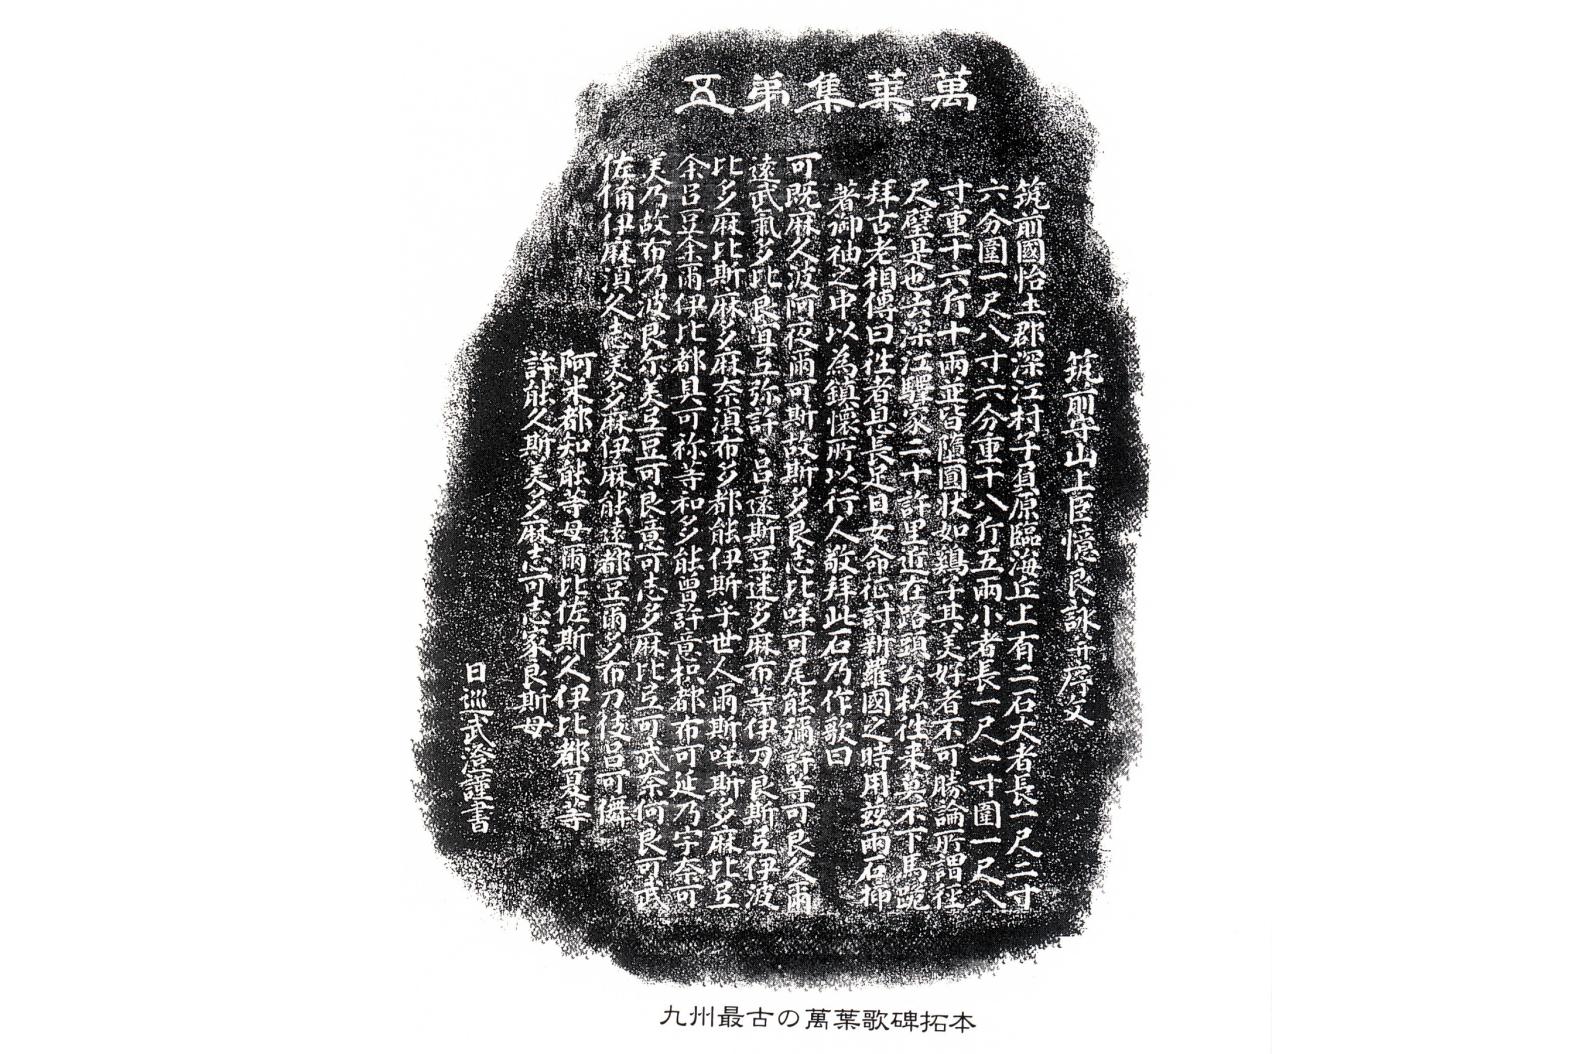 萬葉集苐五
筑前守山上臣憶良詠并序文
筑前國怡土郡深江村子負原臨海丘上有二石大者長一尺二寸
六分圍一尺八寸六分重十八斤五兩小者長一尺一寸圍一尺八
寸重十六斤十兩並皆隨圓状如鶏子其美好者不可勝論所謂徑
尺璧是也去深江驛家二十許里近在路頭公私徃来莫不下馬跪
拜古老相傳曰徃者息長足日女命征討新羅國之時用茲兩石挿
著御袖之中以為鎮懷所以行人敬拜此石乃作歌曰
可既麻久波阿夜爾可斯故斯多良志比咩可尾能彌許等可良久爾
遠武氣多比良宜弖弥許々呂遠斯豆迷多麻布等伊刀良斯弖伊波
比多麻比斯麻多麻奈湏布多都能伊斯乎世人爾斯咩斯多麻比弖
余呂豆余爾伊比都具可祢等和多能曽許意枳都布可延乃宇奈可
美乃故布乃波良尓美弖豆可良意可志多麻比弖可武奈何良可武
佐備伊麻湏久志美多麻伊麻能遠都豆爾多布刀伎呂可儛
阿米都知能等母爾比佐斯久伊比都夏等
許能久斯美多麻志可志家良斯母
日巡武澄謹書
九州最古の萬葉歌碑拓本